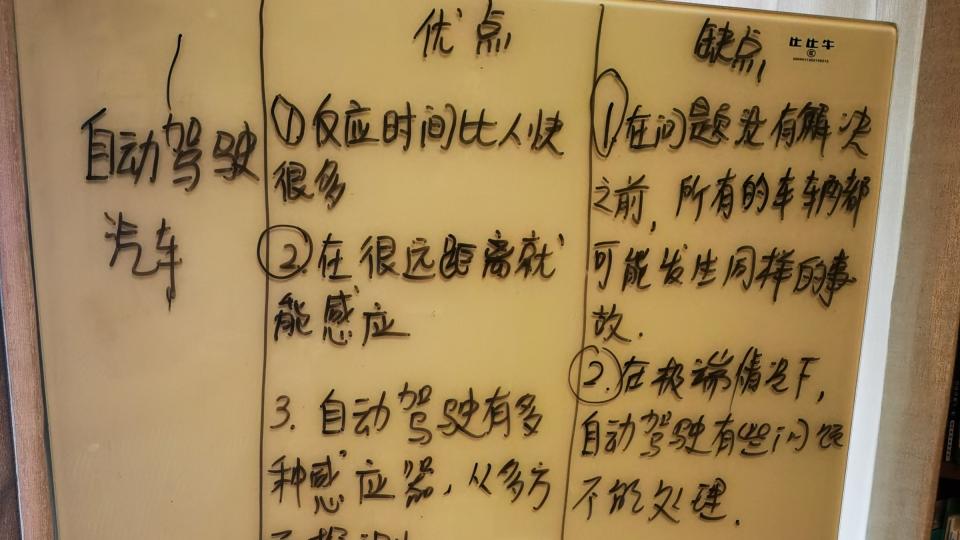 优点
缺点
比比牛
自动驾驶
汽车
①反应时间比人快
很多
②.在很远距离就
能感应
3.自动驾驶有多
种感应器,从多方
①.在问题没有解决
之前,所有的车辆都
可能发生同样的事
故.
②.在极端情况下,
自动驾驶有些问题
不能处理.